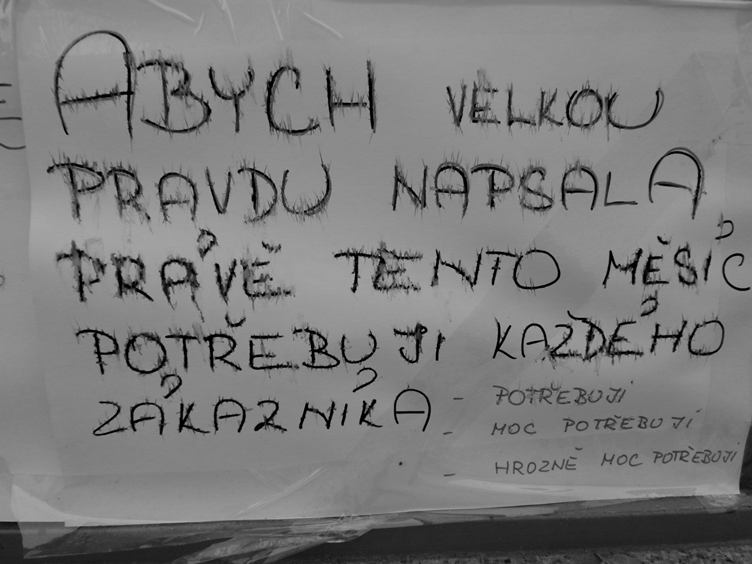 ABYCH VELKOU
PRAVDU NAPSALA
PRÁVĚ TENTO MĚSÍC
POTŘEBUJI KAŽDÉHO
ZÁKAZNÍKA
- POTŘEBUJI
- MOC POTŘEBUJÍ
- HROZNĚ MOC POTŘEBUJÍ